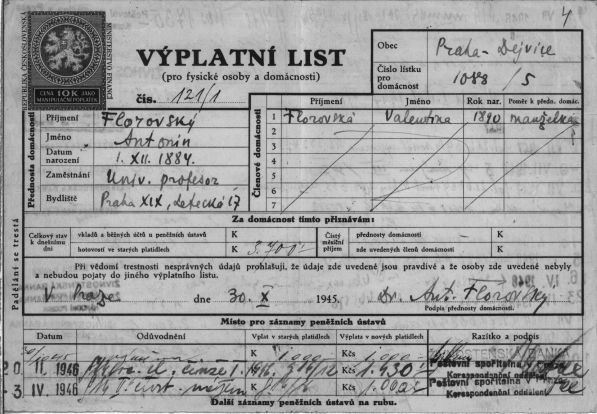 4
REPUBLIKA ČESKOSLOVENSKÁ
MINISTERSTVO FINANCÍ
CENA 10K JAKO
MANIPULAČNÍ POPLATEK
VÝPLATNÍ LIST
(pro fysické osoby a domácnosti)
čís. 121/1
Obec Praha-Dejvice
Číslo lístku pro domácnost 1088/5
Přednosta domácnosti
Příjmení Florovský
Jméno Antonín
Datum narození 1. XII. 1884.
Zaměstnání Univ. profesor
Bydliště Praha XIX, Letecká 17
Členové domácnosti
Příjmení Jméno Rok nar. Poměr k předn. domác.
1 Florovská Valentina 1890 manželka
2
3
4
5
6
7
Za domácnost tímto přiznávám:
Celkový stav k dnešnímu dni
vkladů a běžných účtů u peněžních ústavů K
hotovostí ve starých platidlech K 3.700'-
Čistý měsíční příjem
přednosty domácnosti K
zde uvedených členů domácnosti K
Padělání se trestá
Při vědomí trestnosti nesprávných údajů prohlašuji, že údaje zde uvedené jsou pravdivé a že osoby zde uvedené nebyly
a nebudou pojaty do jiného výplatního listu.
V Praze dne 30. X 1945. Dr. Ant. Florovský
Podpis přednosty domácnosti.
Místo pro záznamy peněžních ústavů
Datum Odůvodnění Vplat v starých platidlech Výplata v nových platidlech Razítko a podpis
K Kčs
20. II. 1946 K Kčs 1.430
-3. IV. 1946 K Kčs
Poštovní spořitelna v Praze
Korespondenční oddělení
Poštovní spořitelna v Praze
Korespondenční oddělení
Další záznamy peněžních ústavů na rubu.